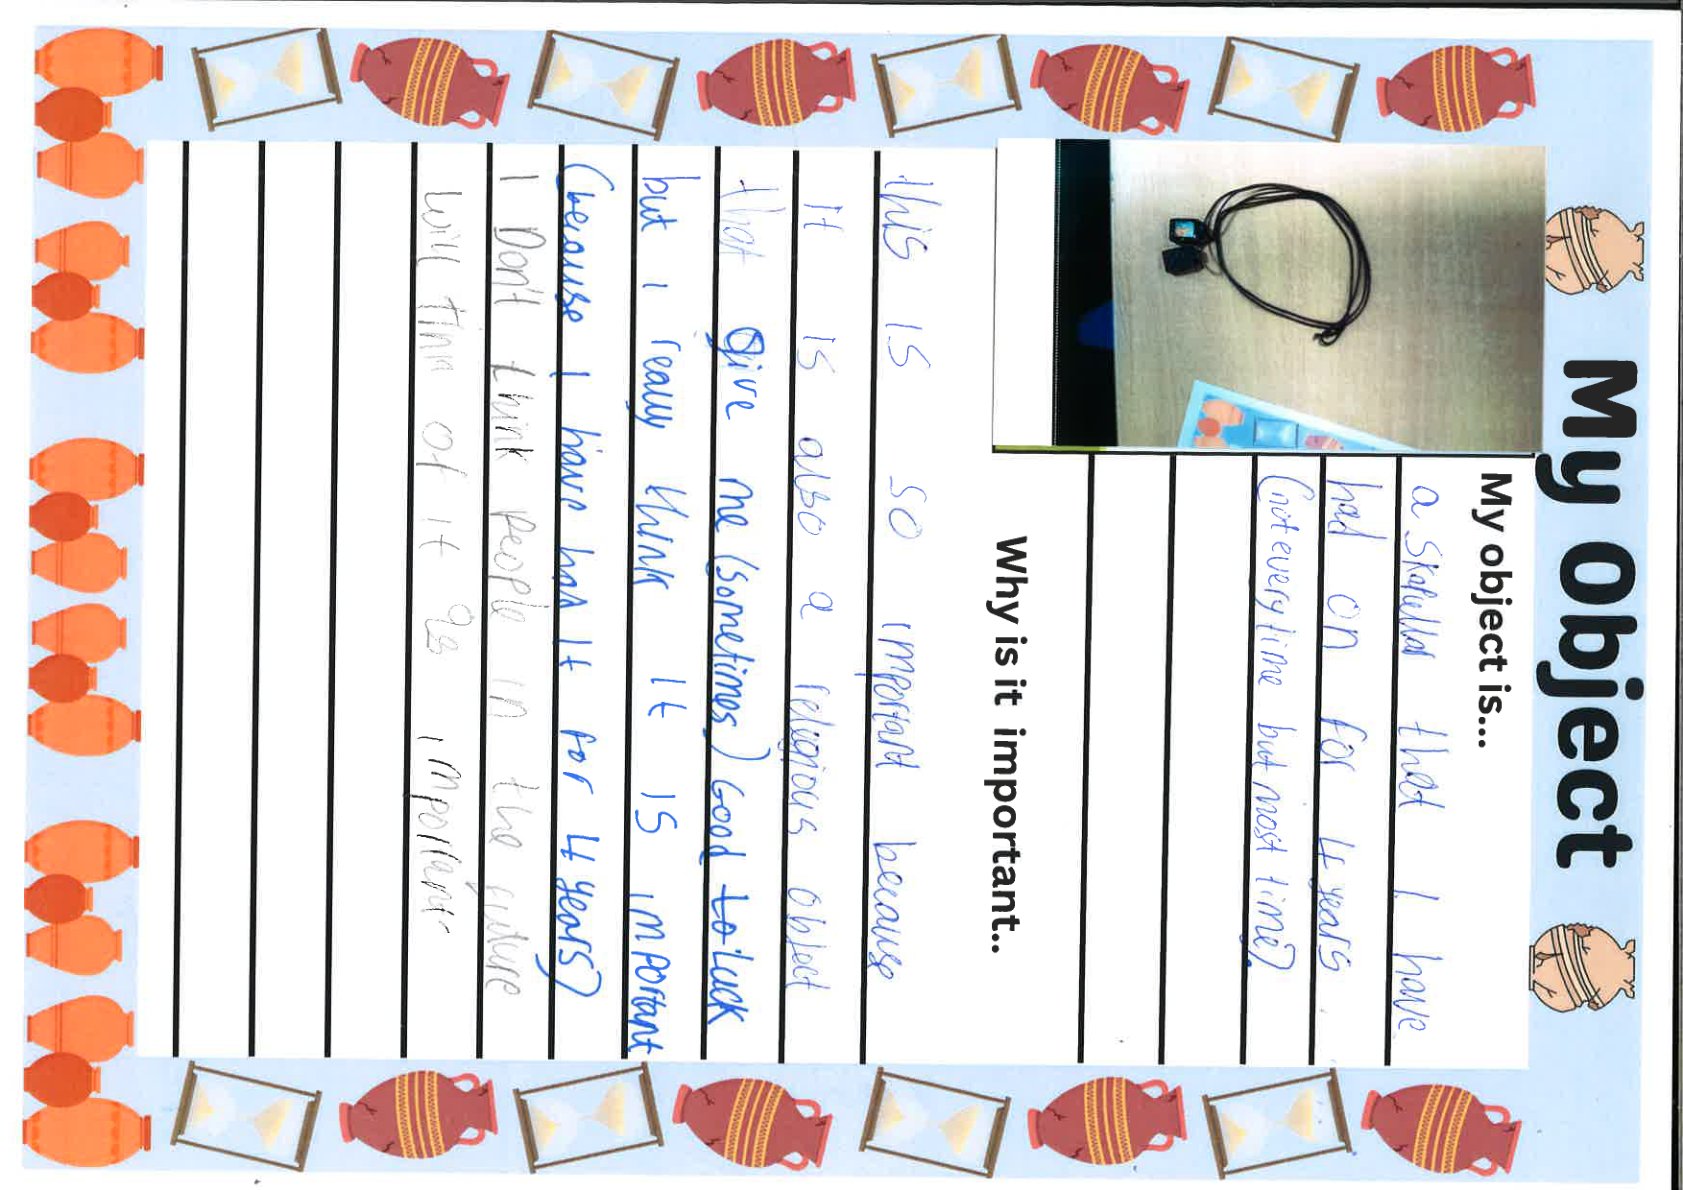 My Object
My object is...
a Skapullar that I have
had on for 4 years
(not every time but most time).
Why is it important..
this is so important because
it is also a religious object
that give me (sometimes) Good to Luck
but i really think it is important
(because I have had it for 4 years)
I Don't think people in the future
will tink of it as important